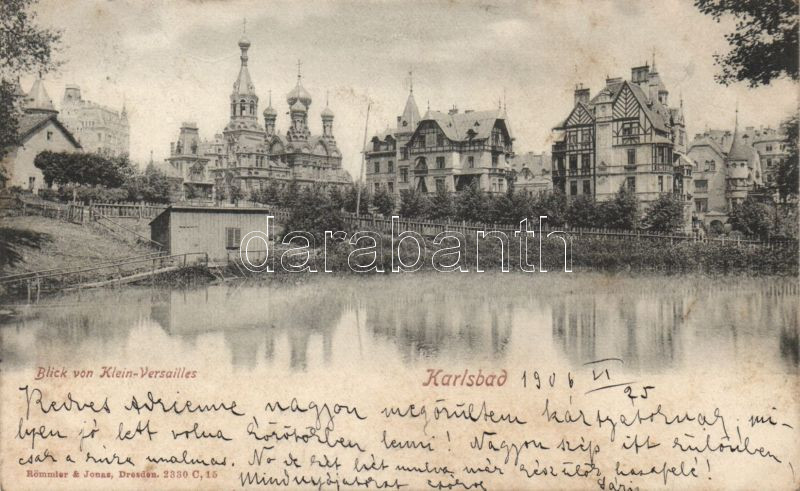 darabanth
Blick von Klein-Versailles
Karlsbad 1906 VI/25
Kedves Adrienne nagyon megörültem kártyátoknak, mi-
lyen jó lett volna körötökben lenni! Nagyon szép itt különben,
csak a kúra unalmas. No de két hét mulva már készülök hazafelé!
Mindnyájatokat csókol
Römmler & Jonas, Dresden. 2330 C, 15